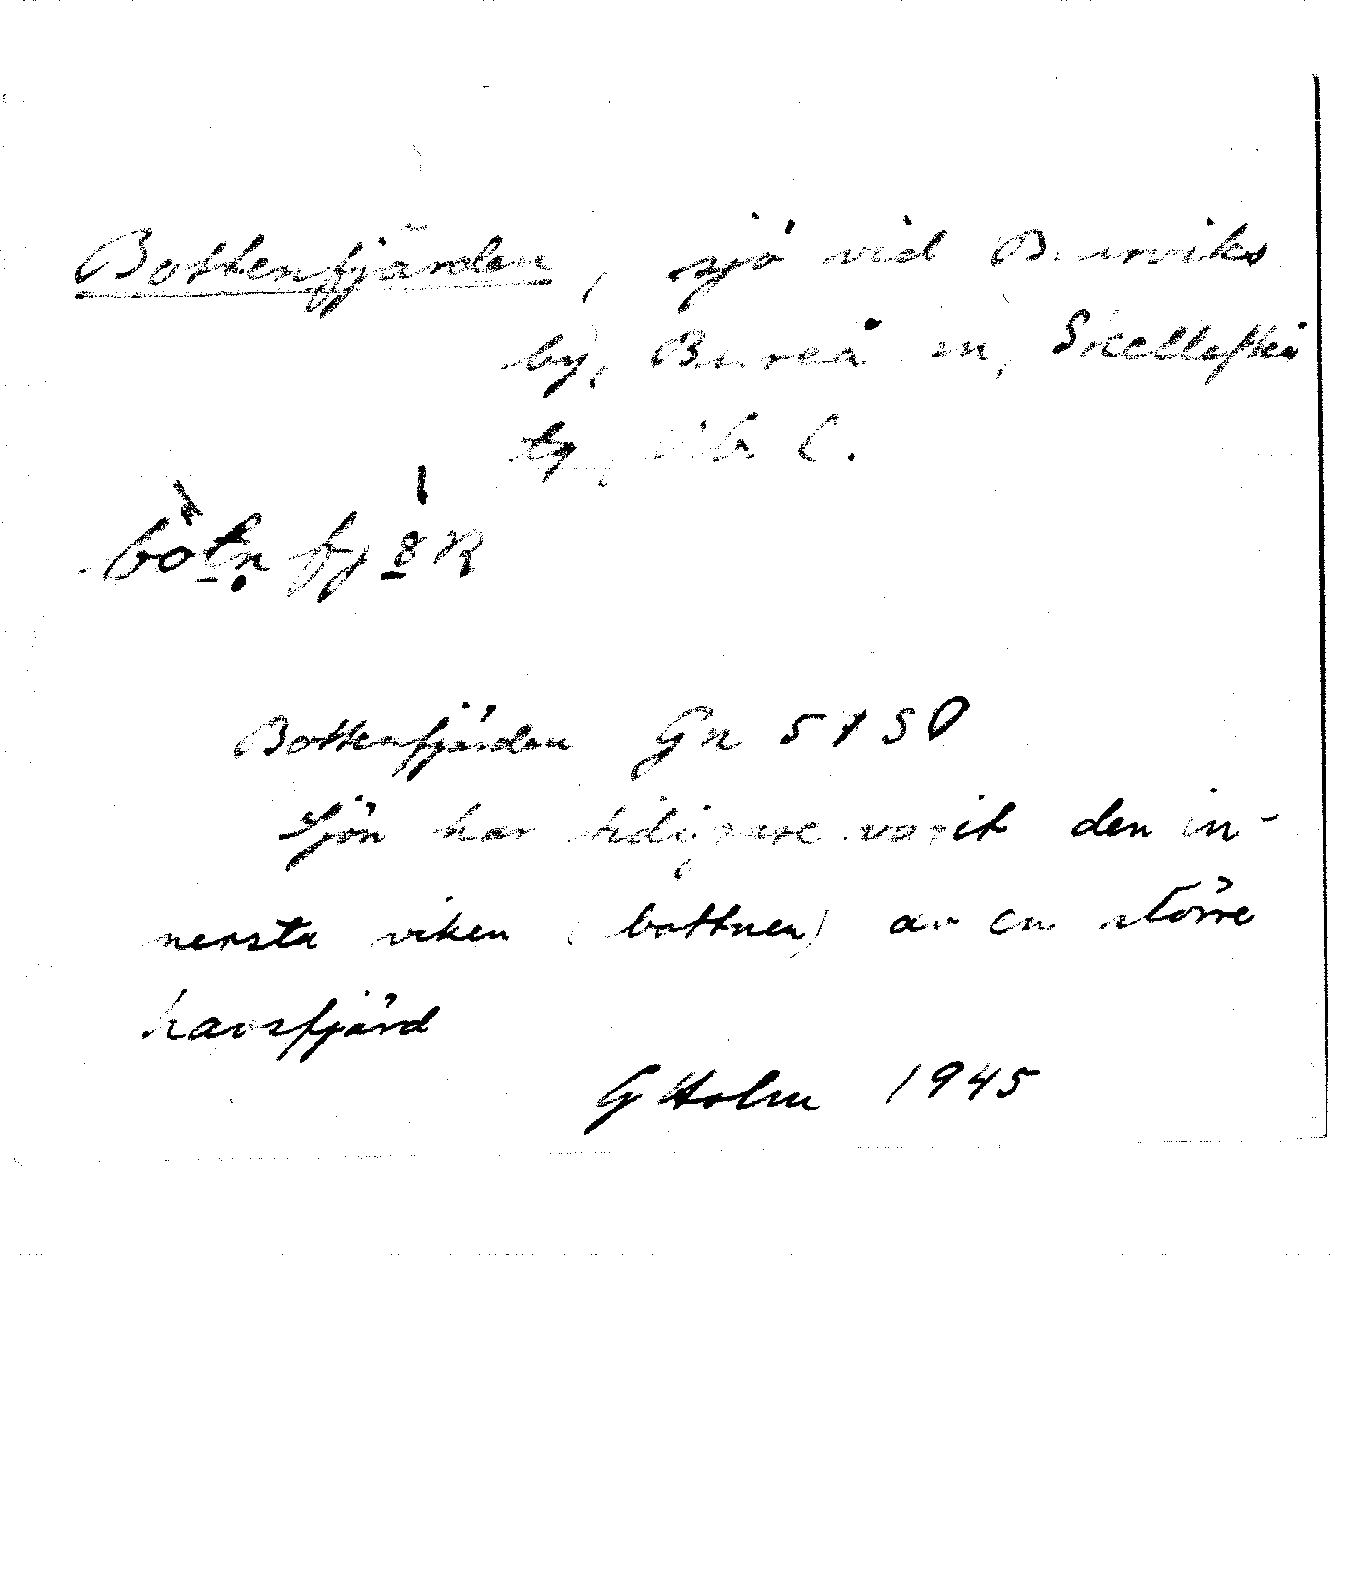 Bottenfjärden, sjö vid Burviks
by, Bureå sn, Skellefteå
tg, Vb l.
Bottenfjärden Gn 5750
Sjön har tidigare varit den in-
nersta viken (bottnen) av en större
havsfjärd
G Holm 1945